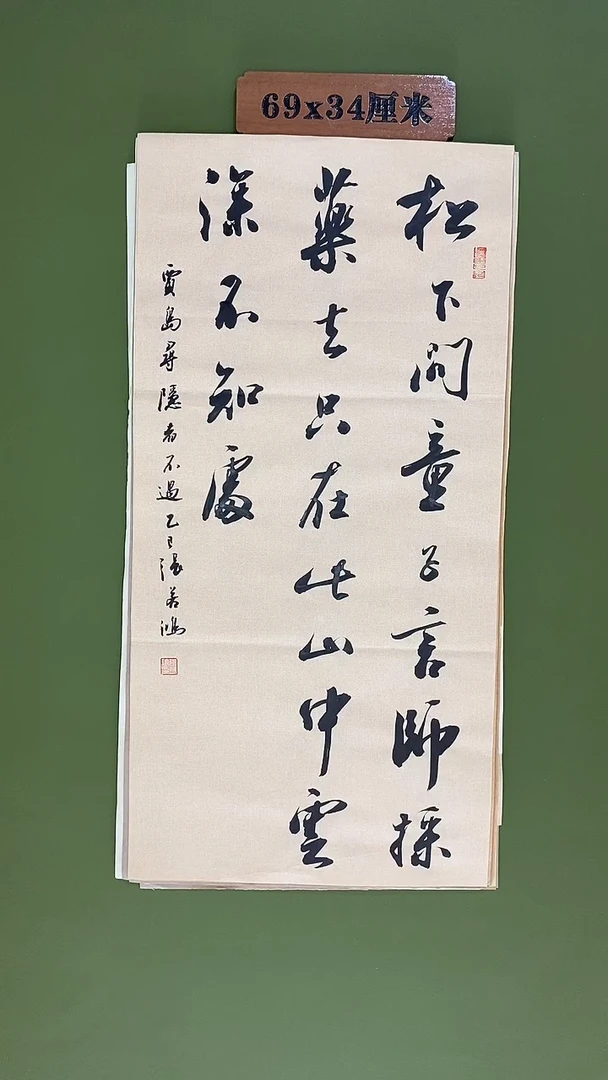 69x34厘米
松下問童子言師採
藥去只在此山中雲
深不知處
賈島尋隱者不遇乙巳張若鴻